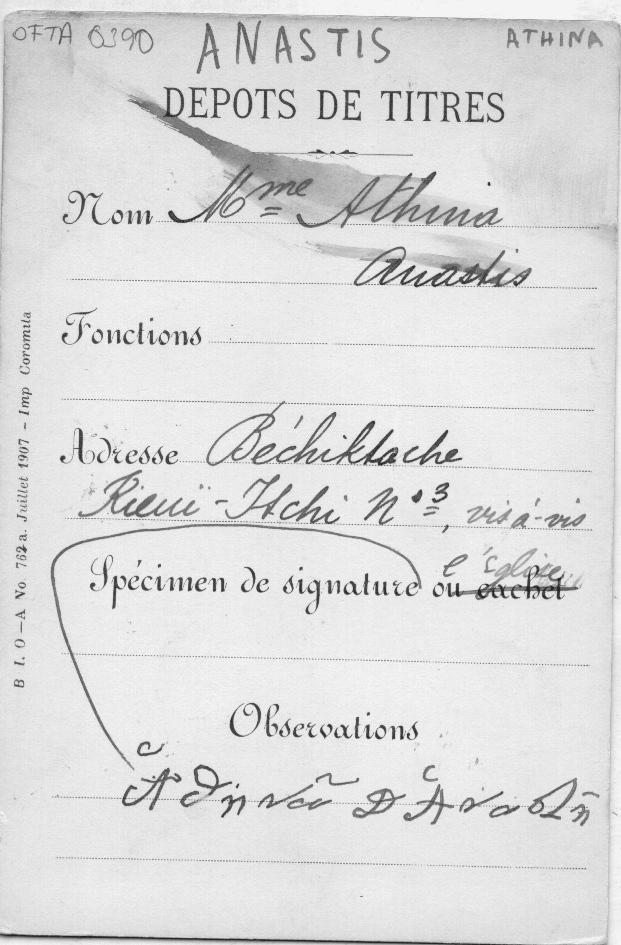 OFTA 6390 ANASTIS ATHINA
DEPOTS DE TITRES
Nom Mme Athina
Anastis
Fonctions
Adresse Béchiktache
Kieuï-Itchi No 3, vis à-vis
l'église
Spécimen de signature ou cachet
Observations
B I. O—A No. 762 a. Juillet 1907 - Imp Coromila